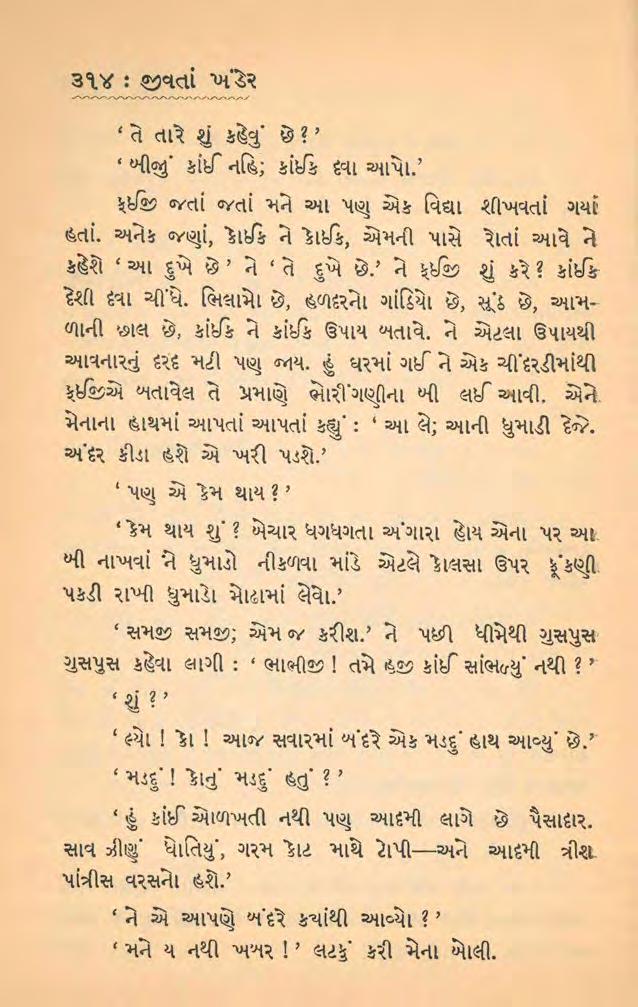 ૩૧૪ : જીવતાં ખંડેર
‘ તે તારે શું કહેવું છે ? ’
‘ બીજું કાંઈ નહિ; કાંઈક દવા આપો.’
ફઈજી જતાં જતાં મને આ પણ એક વિદ્યા શીખવતાં ગયાં
હતાં. અનેક જણાં, કોઈક ને કોઈક, એમની પાસે રોતાં આવે ને
કહેશે ‘ આ દુખે છે ’ ને ‘ તે દુખે છે.’ ને ફઈજી શું કરે ? કાંઈક
દેશી દવા ચીંધે. ભિલામો છે, હળદરનો ગાંઠિયો છે, સૂંઠ છે, આમ-
ળાની છાલ છે, કાંઈક ને કાંઈક ઉપાય બતાવે. ને એટલા ઉપાયથી
આવનારનું દરદ મટી પણ જાય. હું ઘરમાં ગઈ ને એક ચીંદરડીમાંથી
ફઈજીએ બતાવેલ તે પ્રમાણે ભોરીંગણીના બી લઈ આવી. એને
મેનાના હાથમાં આપતાં આપતાં કહ્યું : ‘ આ લે; આની ધુમાડી દેજે.
અંદર કીડા હશે એ ખરી પડશે.’
‘ પણ એ કેમ થાય ? ’
‘ કેમ થાય શું ? બેચાર ધગધગતા અંગારા હોય એના પર આ
બી નાખવાં ને ધુમાડો નીકળવા માંડે એટલે કોલસા ઉપર ફૂંકણી
પકડી રાખી ધુમાડો મોઢામાં લેવો.’
‘ સમજી સમજી; એમ જ કરીશ.’ ને પછી ધીમેથી ગુસપુસ
ગુસપુસ કહેવા લાગી : ‘ ભાભીજી ! તમે હજી કાંઈ સાંભળ્યું નથી ? ’
‘ શું ? ’
‘ લ્યો ! કો ! આજ સવારમાં બંદરે એક મડદું હાથ આવ્યું છે.’
‘ મડદું ! કોનું મડદું હતું ? ’
‘ હું કાંઈ ઓળખતી નથી પણ આદમી લાગે છે પૈસાદાર.
સાવ ઝીણું ધોતિયું, ગરમ કોટ માથે ટોપી—અને આદમી ત્રીશ
પાંત્રીસ વરસનો હશે.’
‘ ને એ આપણે બંદરે ક્યાંથી આવ્યો ? ’
‘ મને ય નથી ખબર ! ’ લટકું કરી મેના બોલી.